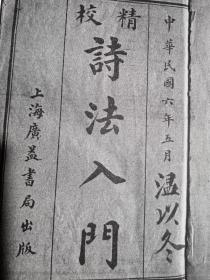 中華民國六年五月
温以冬
精校
詩法入門
上海廣益書局出版